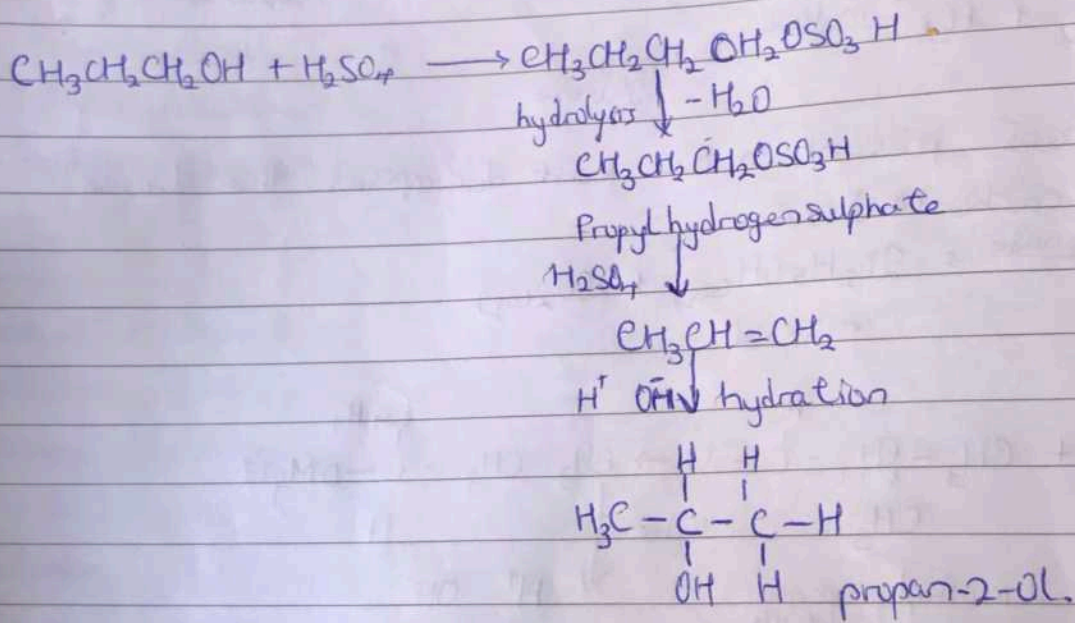 CH₃CH₂CH₂OH + H₂SO₄ ⟶ CH₃CH₂CH₂ OH₂OSO₃ H
hydrolysis ↓ -H₂O
CH₃CH₂CH₂OSO₃H
Propyl hydrogen sulphate
H₂SO₄ ↓
CH₃CH=CH₂
H⁺ OH⁻ ↓ hydration
H H
H₃C - C - C - H
OH H propan-2-ol.